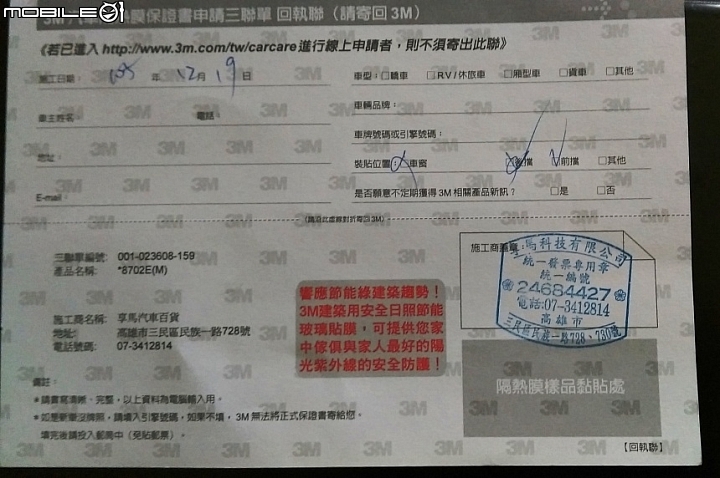 MOBILE01
膜保證書申請三聯單 回執聯（請寄回3M）
《若已進入 http://www.3m.com/tw/carcare 進行線上申請者，則不須寄出此聯》
施工日期： 105 年 12 月 19 日
車型：□轎車 □RV/休旅車 □廂型車 □貨車 □其他
車輛品牌：
車主姓名： 電話：
車牌號碼或引擎號碼：
地址：
裝貼位置： 車窗 後擋 前擋 □其他
E-mail：
是否願意不定期獲得3M相關產品新訊？ □是 □否
三聯單編號: 001-023608-159
產品名稱: *8702E(M)
施工商名稱: 享馬汽車百貨
地址: 高雄市三民區民族一路728號
電話號碼: 07-3412814
響應節能綠建築趨勢！
3M建築用安全日照節能
玻璃貼膜，可提供您家
中傢俱與家人最好的陽
光紫外線的安全防護！
施工商蓋章：
馬科技有限公司
統一發票專用章
統一編號
24684427
電話:07-3412814
高雄市
三民區民族一路728、730號
隔熱膜樣品黏貼處
備註：
*請書寫清晰、完整，以上資料為電腦輸入用。
*如是新車沒牌照，請填入引擎號碼，如果不填，3M無法將正式保證書寄給您。
填完後請投入郵筒中（免貼郵票）。
【回執聯】